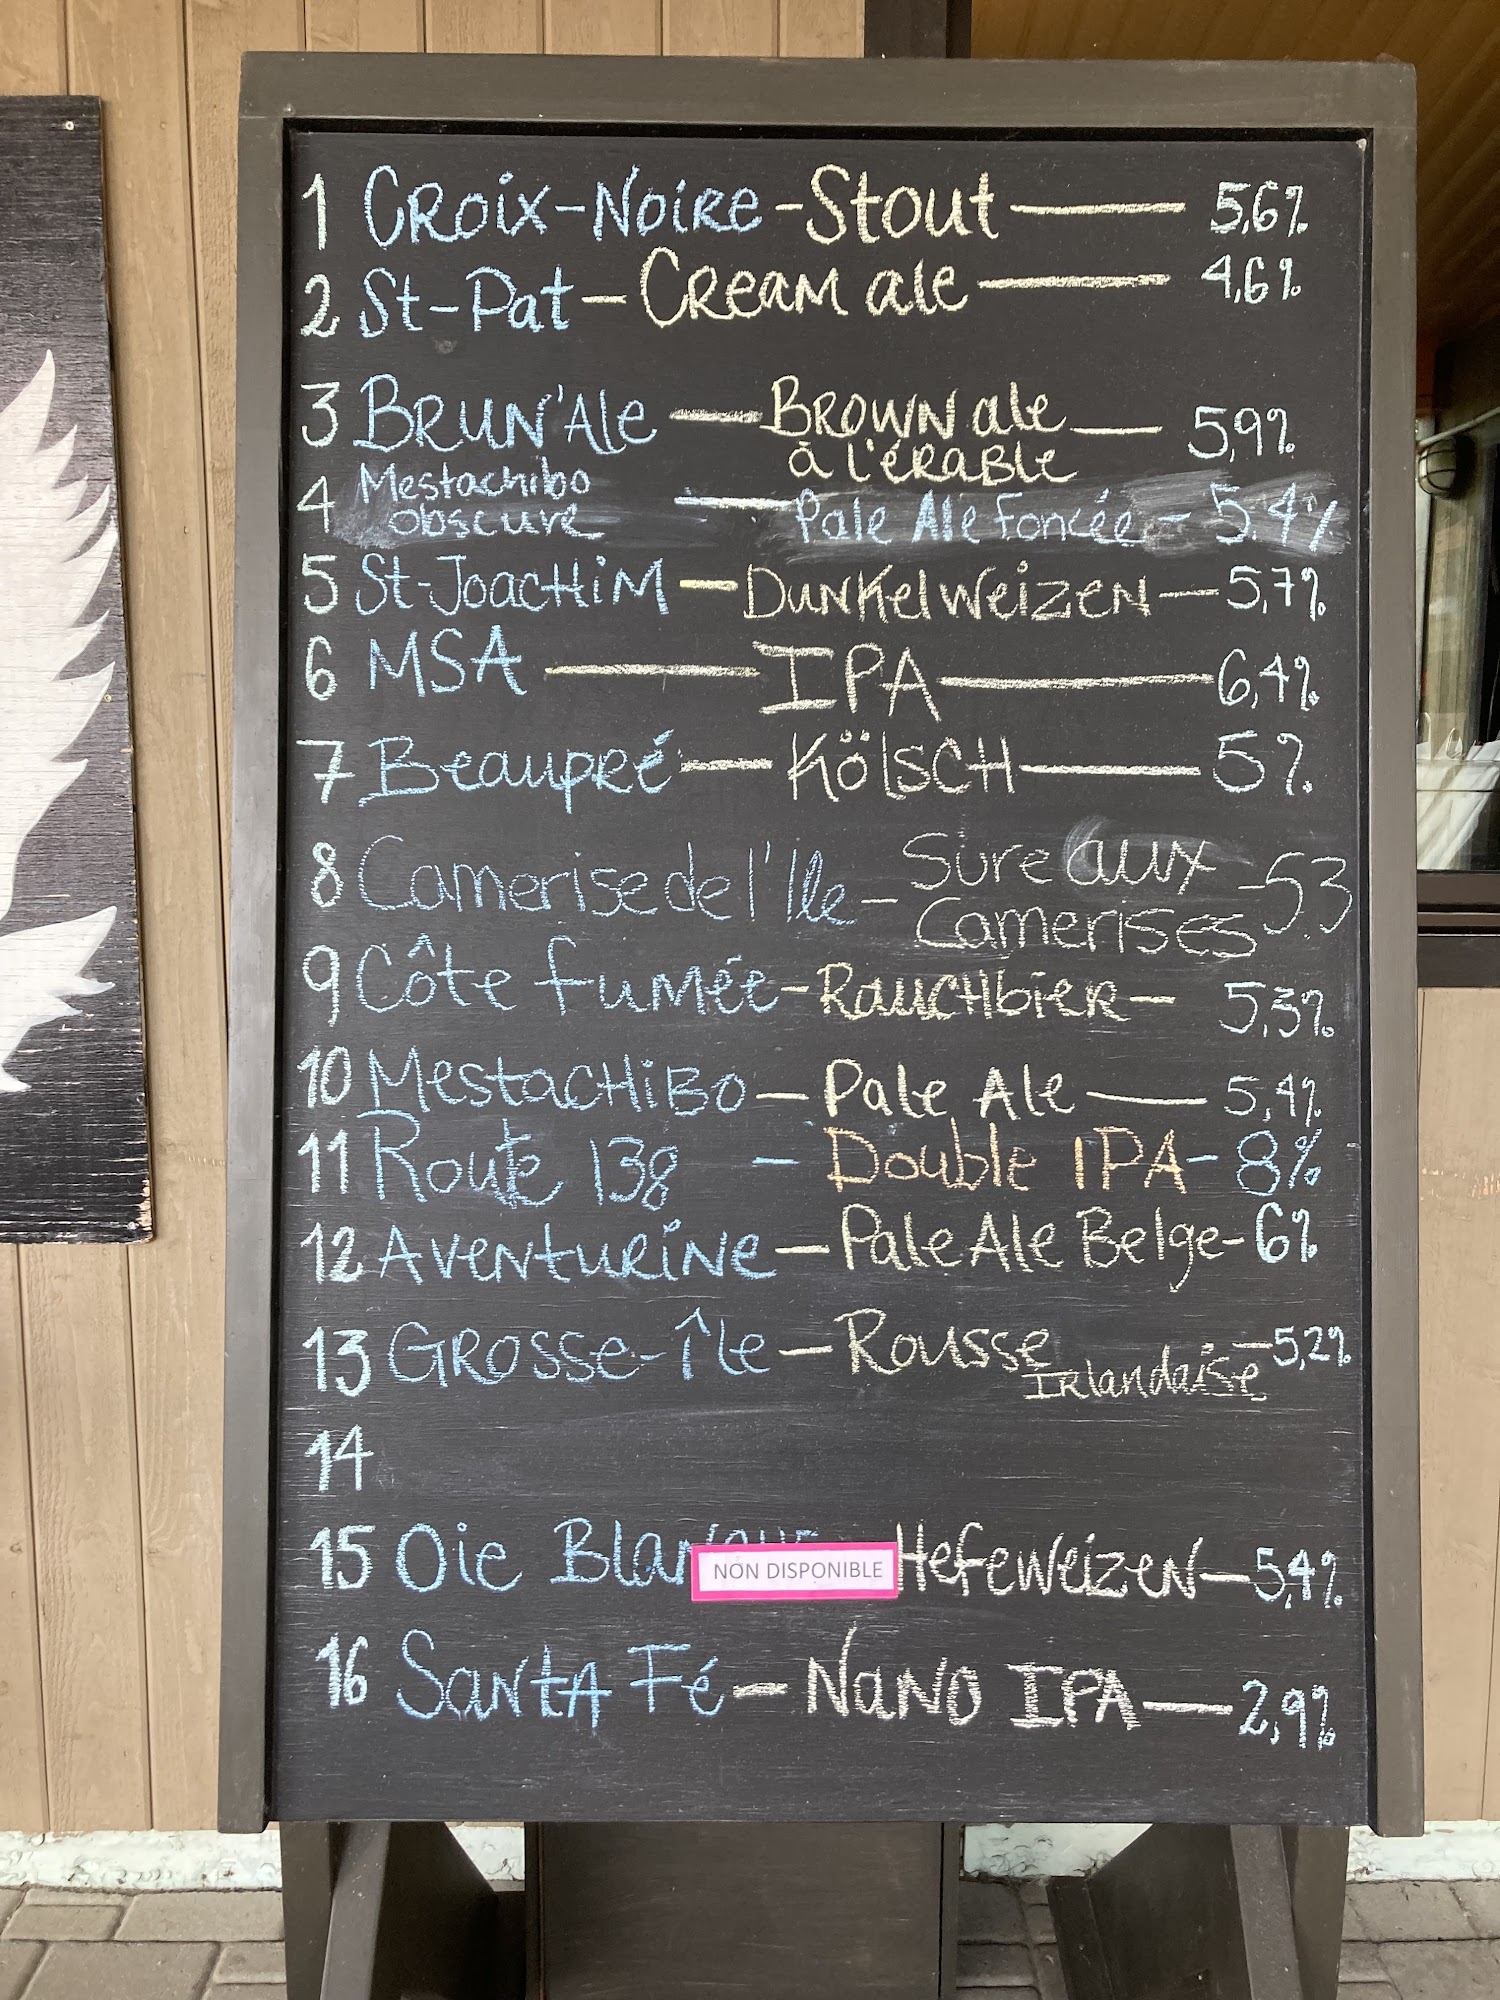 1 Croix-Noire - Stout — 5,6%
2 St-Pat - Cream ale — 4,6%
3 Brun'Ale — Brown ale — 5,9%
à l'érable
4 Mestachibo
obscure — Pale Ale Foncée - 5.4%
5 St-Joachim - Dunkelweizen - 5,7%
6 MSA — IPA — 6,4%
7 Beaupré — Kölsch — 5%
8 Camerise de l'Ile - Sure aux - 5.3
Camerises
9 Côte fumée - Rauchbier - 5,3%
10 Mestachibo - Pale Ale — 5,4%
11 Route 138 - Double IPA - 8%
12 Aventurine - Pale Ale Belge - 6%
13 Grosse-Île - Rousse - 5,2%
Irlandaise
14
15 Oie Blanque NON DISPONIBLE Hefeweizen - 5,4%
16 Santa Fé - Nano IPA — 2,9%